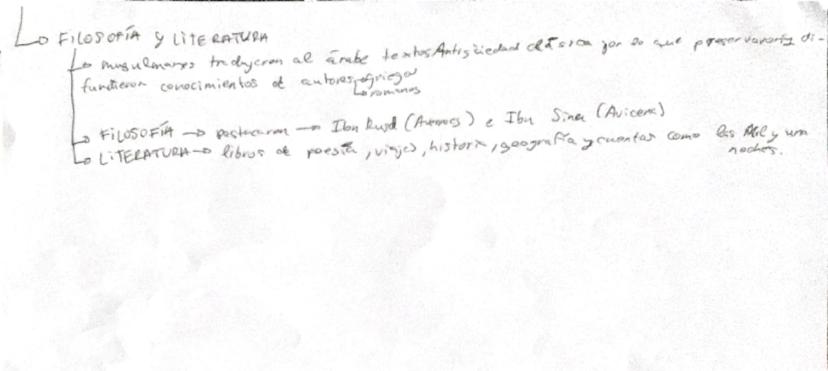 ↳ FILOSOFÍA Y LITERATURA
↳ musulmanes tradujeron al árabe textos Antigüedad clásica por lo que preservaron y di-
fundieron conocimientos de autores → griegos
↳ romanos
↳ FILOSOFÍA → destacaron → Ibn Rusd (Averroes) e Ibn Sina (Avicena)
↳ LITERATURA → libros de poesía, viajes, historia, geografía y cuentos como las Mil y una
noches.